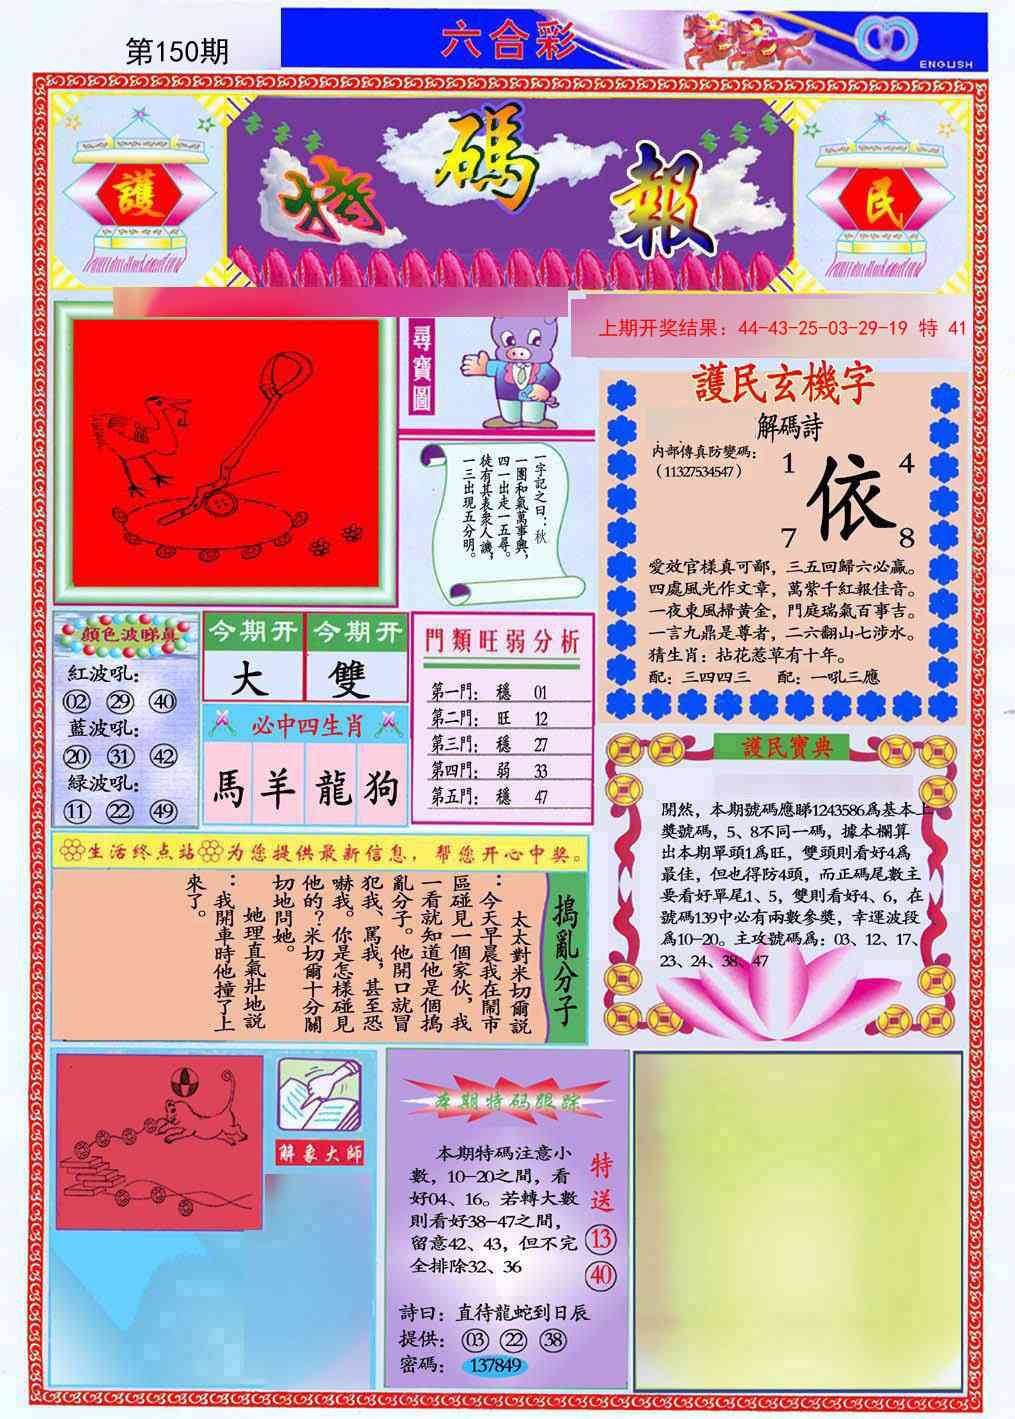 第150期
六合彩
ENGLISH
護
特碼報
民
尋寶圖
上期开奖结果：44-43-25-03-29-19 特 41
一字記之曰：秋
一團和氣萬事興，
四一出走一五尋。
徒有其表衆人譏，
一三出現五分明。
護民玄機字
解碼詩
内部傳真防變碼：
（11327534547）
1
4
依
7
8
愛效官様真可鄙，三五回歸六必贏。
四處風光作文章，萬紫千紅報佳音。
一夜東風掃黃金，門庭瑞氣百事吉。
一言九鼎是尊者，二六翻山七涉水。
猜生肖：拈花惹草有十年。
配：三四四三 配：一吼三應
顔色波睇真
紅波吼：
02 29 40
藍波吼：
20 31 42
緑波吼：
11 22 49
今期开 今期开
大 雙
必中四生肖
馬 羊 龍 狗
門類旺弱分析
第一門： 穩 01
第二門： 旺 12
第三門： 穩 27
第四門： 弱 33
第五門： 穩 47
護民寶典
開然，本期號碼應睇1243586爲基本上
獎號碼，5、8不同一碼，據本欄算
出本期單頭1爲旺，雙頭則看好4爲
最佳，但也得防4頭，而正碼尾數主
要看好單尾1、5，雙則看好4、6，在
號碼139中必有兩數參獎，幸運波段
爲10-20。主攻號碼爲：03、12、17、
23、24、38、47
生活终点站 为您提供最新信息，帮您开心中奖。
搗亂分子
太太對米切爾説
：今天早晨我在鬧市
區碰見一個家伙，我
一看就知道他是個搗
亂分子。他開口就冒
犯我、駡我，甚至恐
嚇我。你是怎樣碰見
他的？米切爾十分關
切地問她。
她理直氣壯地説
：我開車時他撞了上
來了。
解象大師
本期特码跟踪
本期特碼注意小
數，10-20之間，看
好04、16。若轉大數
則看好38-47之間，
留意42、43，但不完
全排除32、36
特送
13
40
詩曰：直待龍蛇到日辰
提供：03 22 38
密碼：137849